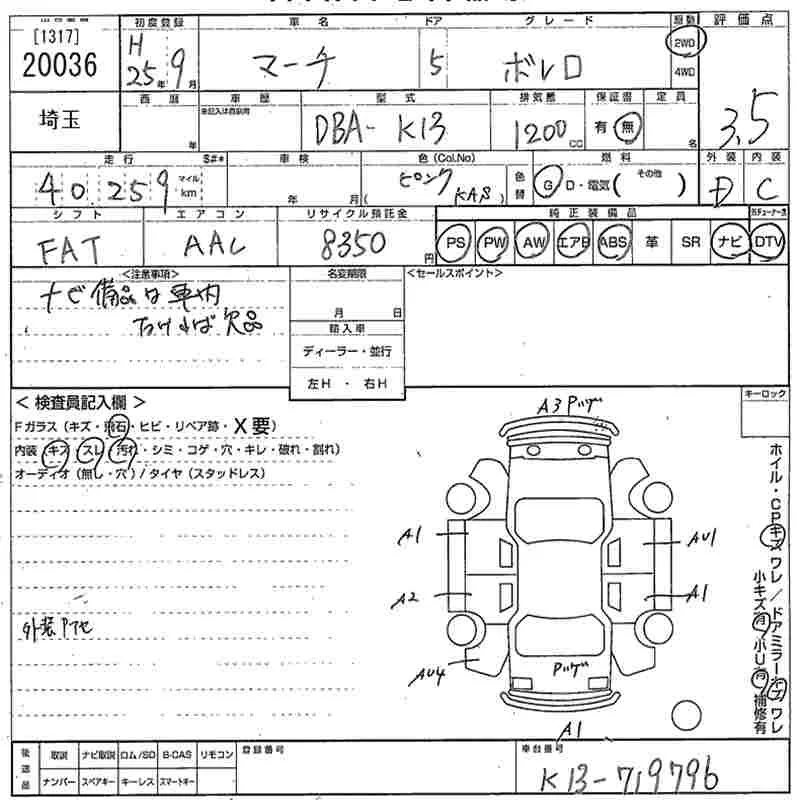 [1317]
20036
初度登録
H 25年 9月
車名
マーチ
ドア
5
グレード
ボレロ
原動
2WD
4WD
評価点
3.5
埼玉
西暦
年
車歴
未記入は自家用
型式
DBA- K13
排気量
1200 CC
保証書
有 無
定員
名
走行
S#*
40259
マイル
km
車検
年 月
色 (Col.No)
ピンク
( KAS )
色替
燃料
G D・電気( その他 )
外装
D
内装
C
シフト
FAT
エアコン
AAC
リサイクル預託金
8350 円
純正装備品
PS PW AW エアB ABS 革 SR ナビ DTV
<注意事項>
ナビ備品は車内
なければ欠品
名変期限
月 日
輸入車
ディーラー・並行
左H ・ 右H
<セールスポイント>
< 検査員記入欄 >
Fガラス (キズ・飛石・ヒビ・リペア跡・X要)
内装 (キズ・スレ・汚れ・シミ・コゲ・穴・キレ・破れ・割れ)
オーディオ (無し・穴) / タイヤ (スタッドレス)
外装Pアセ
キーロック
A3 Pハゲ
A1
AU1
A2
A1
AU4
Pハゲ
A1
ホイル・CPキズ ワレ / ドアミラーキズ ワレ
小キズ有 小U有 補修有
後送品
取説 ナビ取説 ロム/SD B-CAS リモコン
ナンバー スペアキー キーレス スマートキー
登録番号
車台番号
K13-719796